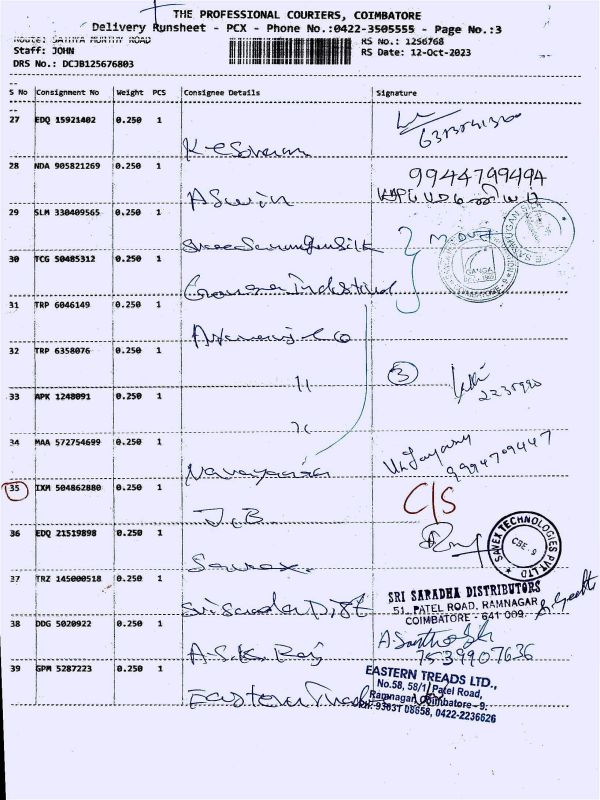 THE PROFESSIONAL COURIERS, COIMBATORE
Delivery Runsheet - PCX - Phone No.:0422-3505555 - Page No.:3
Route: SATHYA MURTHY ROAD
RS No.: 1256768
Staff: JOHN
RS Date: 12-Oct-2023
DRS No.: DCJB125676803
S No Consignment No Weight PCS Consignee Details Signature
27 EDQ 15921402 0.250 1
28 NDA 905821269 0.250 1
9944799494
Aswin
29 SLM 330409565 0.250 1
30 TCG 50485312 0.250 1
GANGA
31 TRP 6046149 0.250 1
32 TRP 6358076 0.250 1
11
3
33 APK 1248091 0.250 1
34 MAA 572754699 0.250 1
9994709447
Narayana
35 IXM 504862880 0.250 1
C/S
J.C.B
36 EDQ 21519898 0.250 1
SAVEX TECHNOLOGIES PVT LTD
CBE-9
Savex
37 TRZ 145000518 0.250 1
SRI SARADHA DISTRIBUTORS
51, PATEL ROAD, RAMNAGAR
COIMBATORE - 641 009.
Sri Sarada Dist
38 DDG 5020922 0.250 1
7539907636
A.S.K. Raj
39 GPM 5287223 0.250 1
EASTERN TREADS LTD.,
No.58, 58/1, Patel Road,
Ramnagar, Coimbatore - 9.
08658, 0422-2236626
Eastern Treads